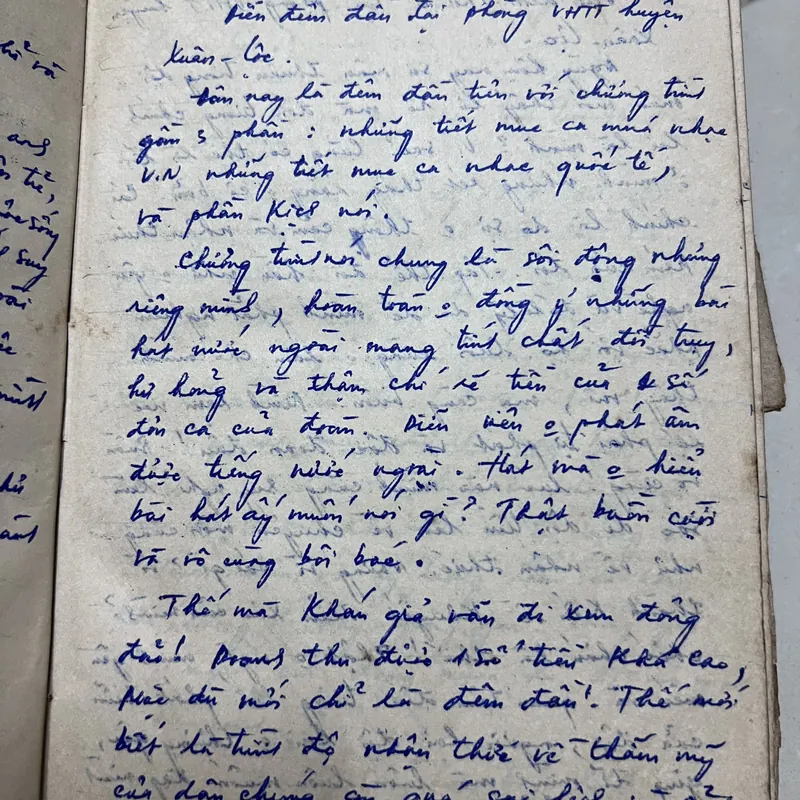 Diễn đêm đầu tại phòng VHTT huyện
Xuân-Lộc.
Lần này là đêm đầu tiên với chương trình
gồm 3 phần: những tiết mục ca múa nhạc
V.N những tiết mục ca nhạc quốc tế,
và phần Kịch nói.
Chương trình nói chung là sôi động nhưng
riêng mình, hoàn toàn o đồng ý những bài
hát nước ngoài mang tính chất đồi trụy,
hư hỏng và thậm chí rẻ tiền của 1 số
đơn ca của đoàn. Diễn viên o phát âm
được tiếng nước ngoài. Hát mà o hiểu
bài hát ấy muốn nói gì? Thật buồn cười
và vô cùng bôi bác.
Thế mà Khán giả vẫn đi xem đông
đảo! Đoàn thu được 1 số tiền Khá cao,
Mặc dù mới chỉ là đêm đầu! Thế mới
biết là trình độ nhận thức về thẩm mỹ
của dân chúng còn quá